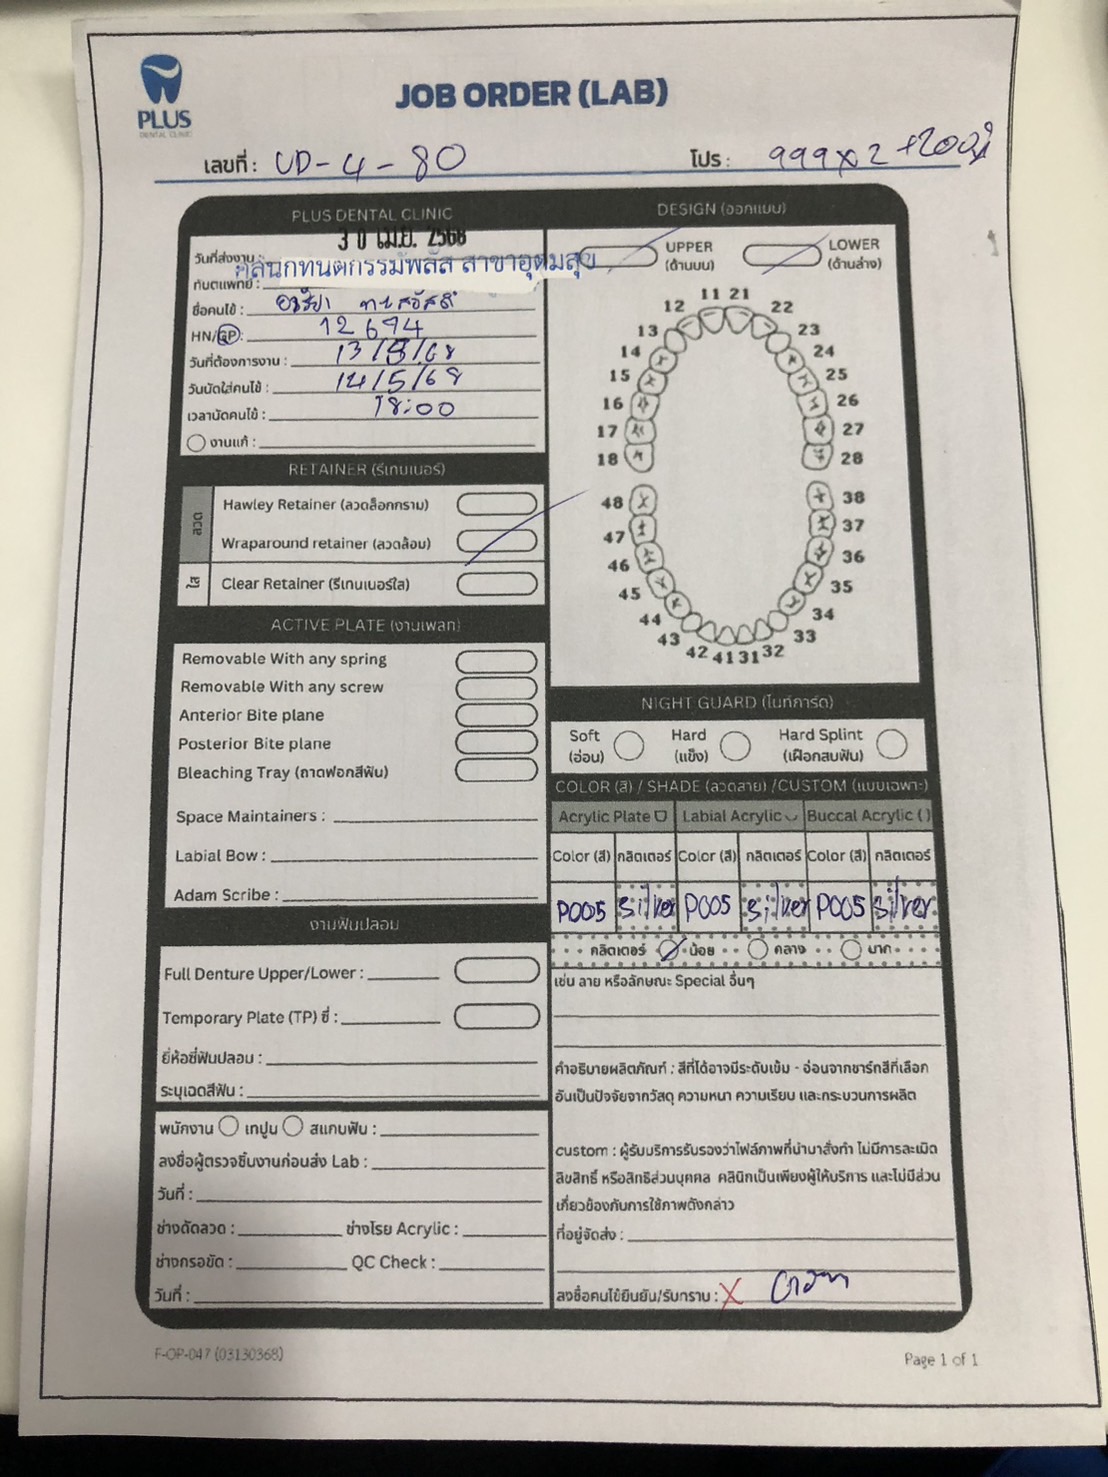 PLUS
DENTAL CLINIC
JOB ORDER (LAB)
เลขที่ : UD-4-80
โปร : 999x2 +200
PLUS DENTAL CLINIC
วันที่ส่งงาน 30 เม.ย. 2568
คลินิกทันตกรรมพลัส สาขาอุดมสุข
ทันตแพทย์ :
ชื่อคนไข้ :
HN/GP : 12694
วันที่ต้องการงาน : 13/5/68
วันนัดใส่คนไข้ : 14/5/68
เวลานัดคนไข้ : 18:00
งานแก้ :
RETAINER (รีเทนเนอร์)
ลวด
Hawley Retainer (ลวดล็อกกราม)
Wraparound retainer (ลวดล้อม)
ใส
Clear Retainer (รีเทนเนอร์ใส)
ACTIVE PLATE (งานเพลท)
Removable With any spring
Removable With any screw
Anterior Bite plane
Posterior Bite plane
Bleaching Tray (ถาดฟอกสีฟัน)
Space Maintainers :
Labial Bow :
Adam Scribe :
งานฟันปลอม
Full Denture Upper/Lower :
Temporary Plate (TP) ซี่ :
ยี่ห้อซี่ฟันปลอม :
ระบุเฉดสีฟัน :
พนักงาน เทปูน สแกนฟัน :
ลงชื่อผู้ตรวจชิ้นงานก่อนส่ง Lab :
วันที่ :
ช่างดัดลวด : ช่างโรย Acrylic :
ช่างกรอขัด : QC Check :
วันที่ :
DESIGN (ออกแบบ)
UPPER (ด้านบน)
LOWER (ด้านล่าง)
11 21
12 22
13 23
14 24
15 25
16 26
17 27
18 28
48 38
47 37
46 36
45 35
44 34
43 33
42 41 31 32
NIGHT GUARD (ไนท์การ์ด)
Soft (อ่อน)
Hard (แข็ง)
Hard Splint (เฝือกสบฟัน)
COLOR (สี) / SHADE (ลวดลาย) /CUSTOM (แบบเฉพาะ)
Acrylic Plate Labial Acrylic Buccal Acrylic ( )
Color (สี) กลิตเตอร์ Color (สี) กลิตเตอร์ Color (สี) กลิตเตอร์
P005 silver P005 silver P005 silver
กลิตเตอร์ น้อย กลาง มาก
เช่น ลาย หรือลักษณะ Special อื่นๆ
คำอธิบายผลิตภัณฑ์ : สีที่ได้อาจมีระดับเข้ม - อ่อนจากชาร์ทสีที่เลือก
อันเป็นปัจจัยจากวัสดุ ความหนา ความเรียบ และกระบวนการผลิต
custom : ผู้รับบริการรับรองว่าไฟล์ภาพที่นำมาสั่งทำ ไม่มีการละเมิด
ลิขสิทธิ์ หรือสิทธิส่วนบุคคล คลินิกเป็นเพียงผู้ให้บริการ และไม่มีส่วน
เกี่ยวข้องกับการใช้ภาพดังกล่าว
ที่อยู่จัดส่ง :
ลงชื่อคนไข้ยืนยัน/รับทราบ : X
F-OP-047 (03130368)
Page 1 of 1